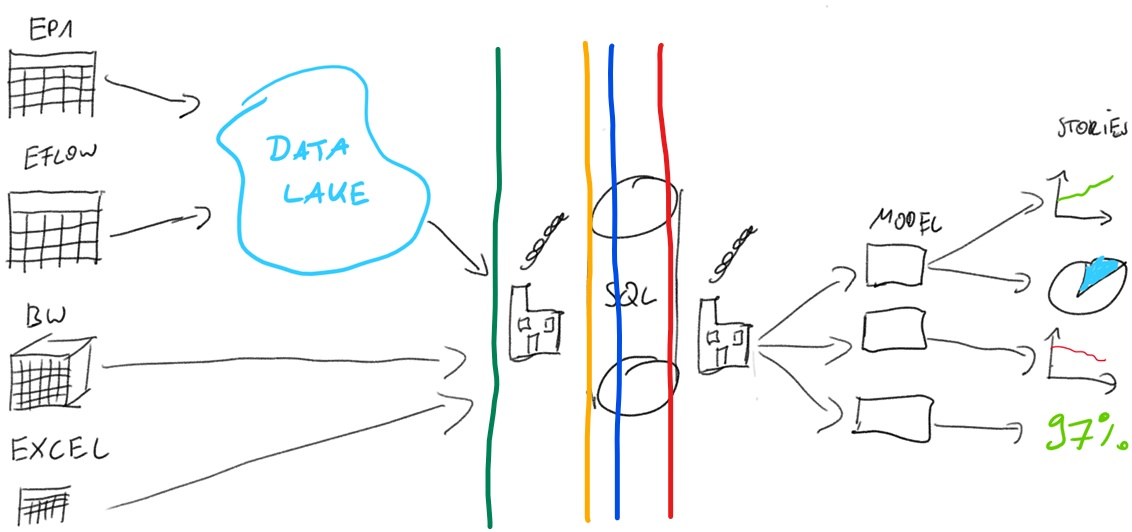 EP1
EFLOW
BW
EXCEL
DATA
LAKE
SQL
MODEL
STORIES
97%